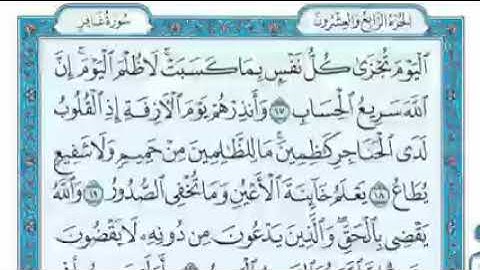 سُورَةُ غَافِرٍ الجُزْءُ الرَّابِعُ وَالعِشْرُونَ
ٱلْيَوْمَ تُجْزَىٰ كُلُّ نَفْسٍۭ بِمَا كَسَبَتْ ۚ لَا ظُلْمَ ٱلْيَوْمَ ۚ إِنَّ
ٱللَّهَ سَرِيعُ ٱلْحِسَابِ ١٧ وَأَنذِرْهُمْ يَوْمَ ٱلْءَازِفَةِ إِذِ ٱلْقُلُوبُ
لَدَى ٱلْحَنَاجِرِ كَٰظِمِينَ ۚ مَا لِلظَّٰلِمِينَ مِنْ حَمِيمٍ وَلَا شَفِيعٍ
يُطَاعُ ١٨ يَعْلَمُ خَآئِنَةَ ٱلْأَعْيُنِ وَمَا تُخْفِى ٱلصُّدُورُ ١٩ وَٱللَّهُ
يَقْضِى بِٱلْحَقِّ ۖ وَٱلَّذِينَ يَدْعُونَ مِن دُونِهِۦ لَا يَقْضُونَ